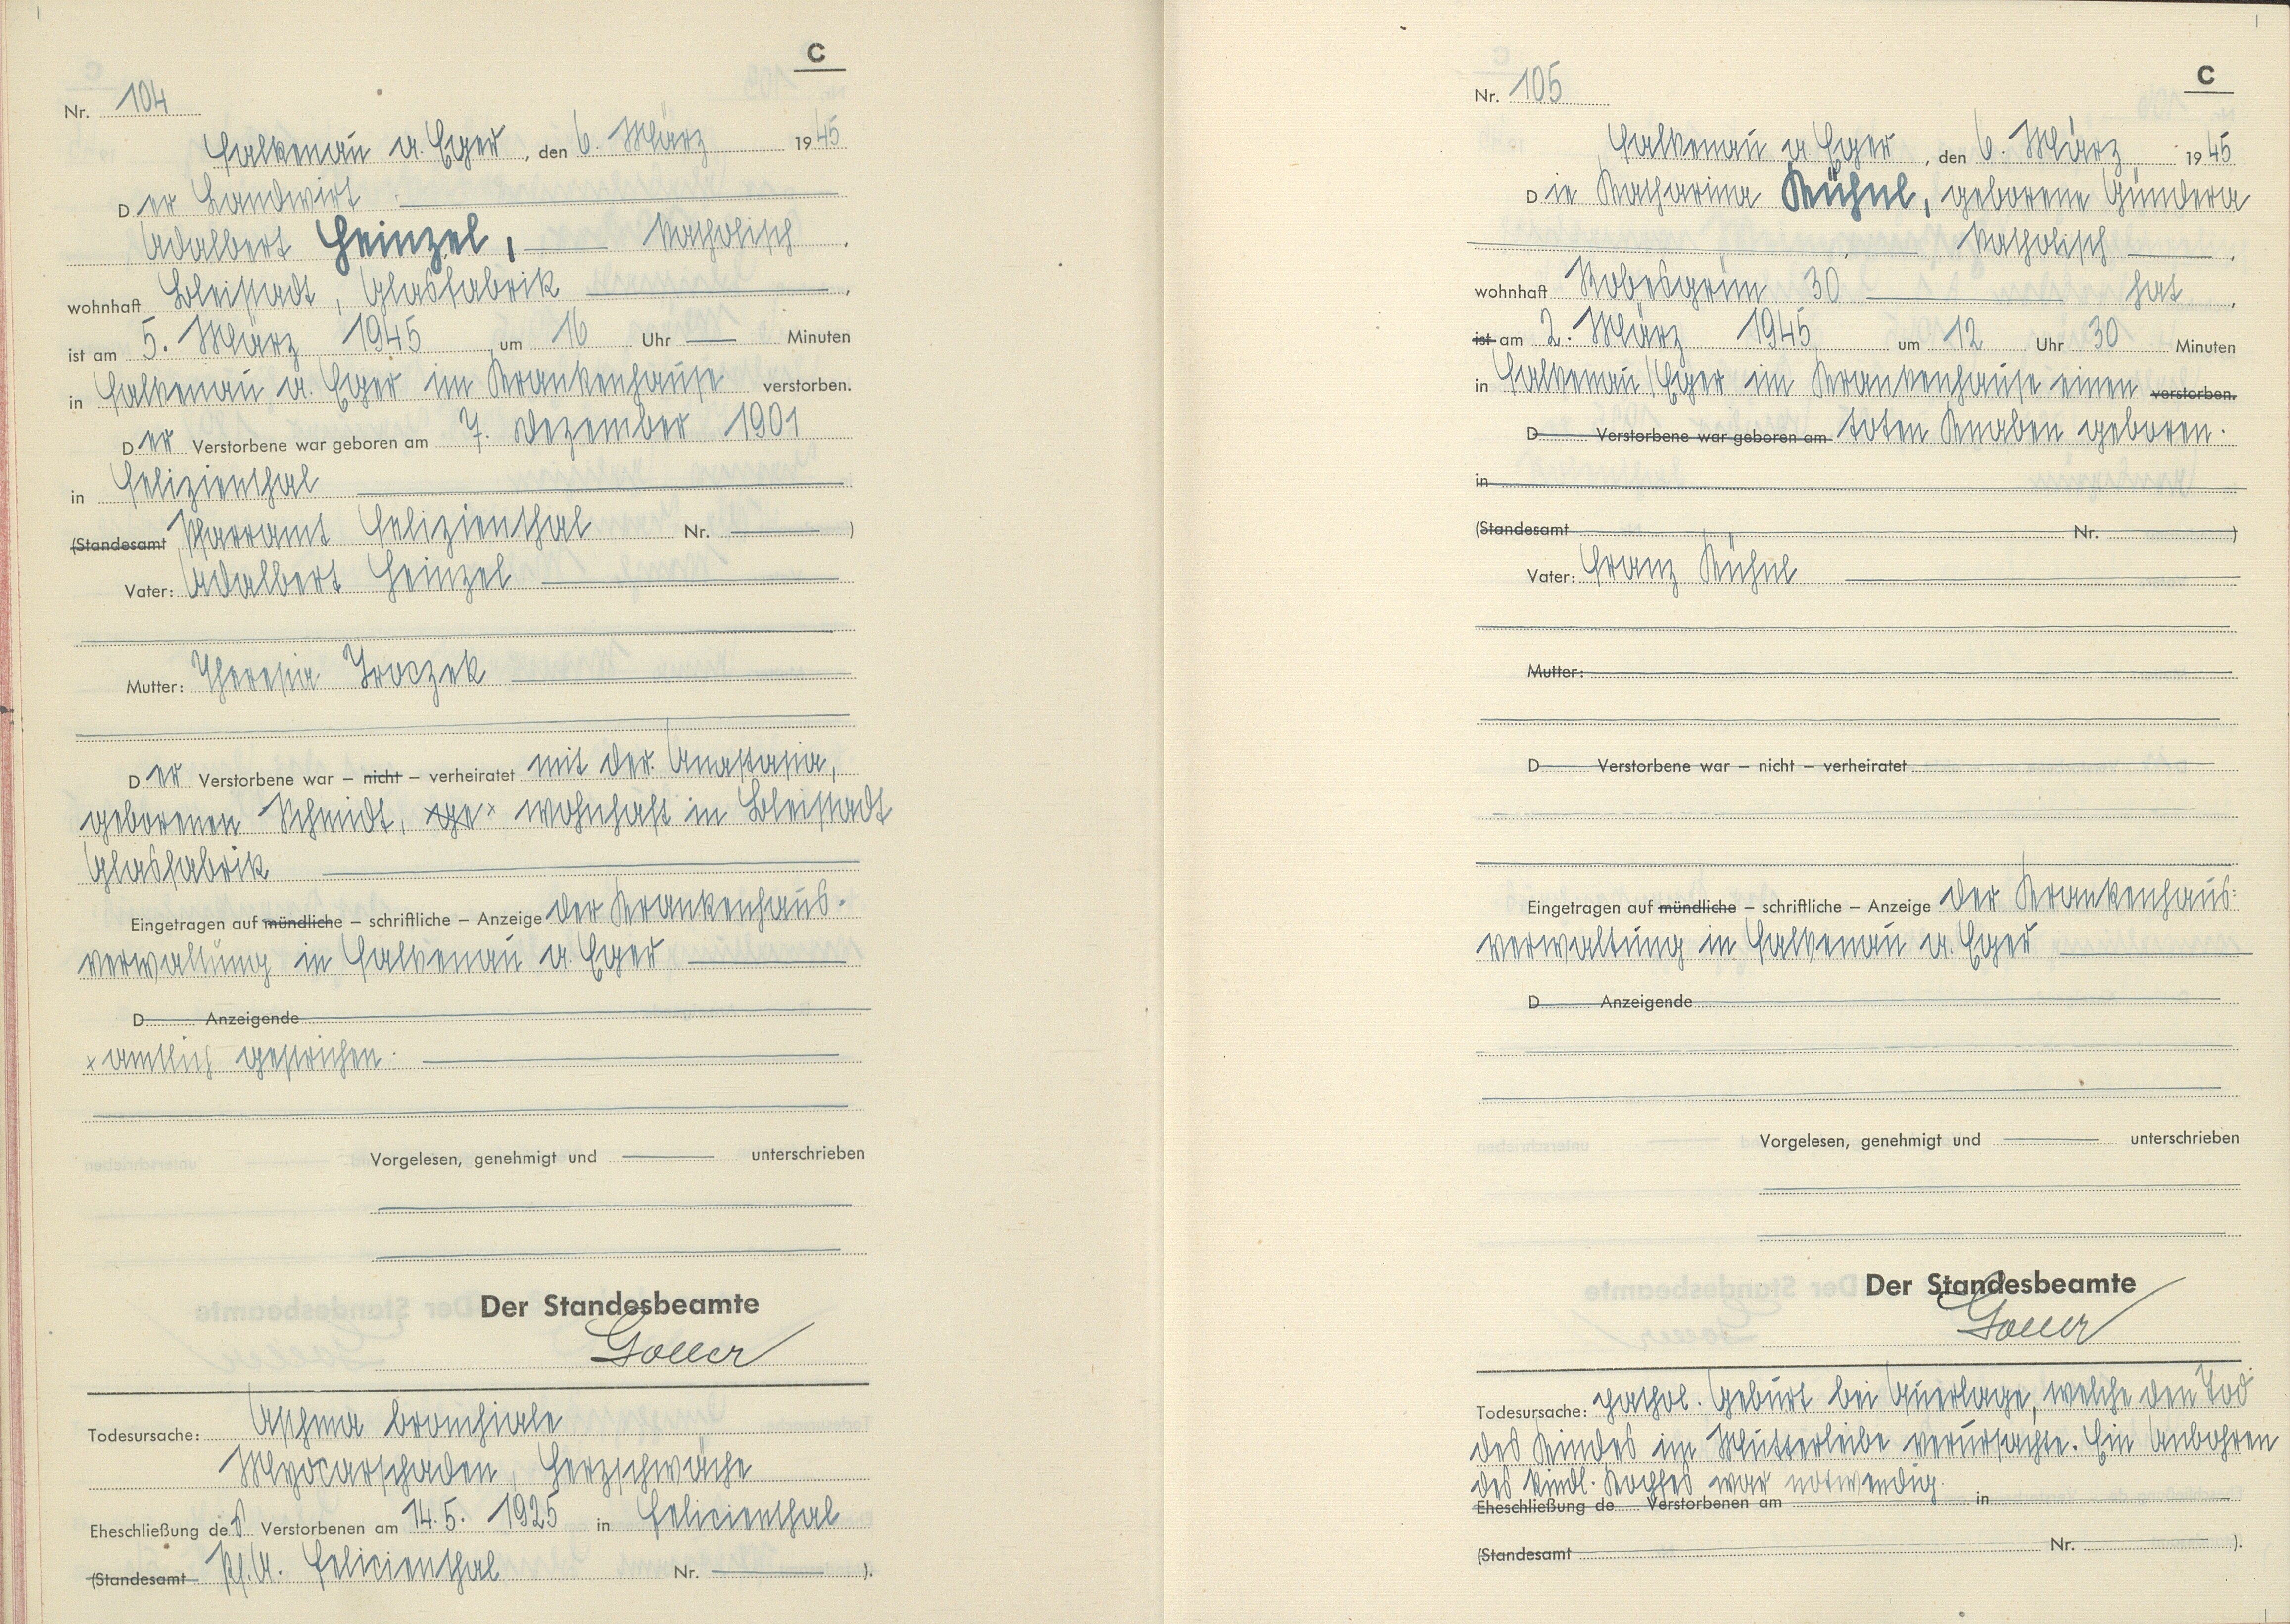 C
Nr. 104
Falkenau a. Eger, den 6. März 1945
Der Landwirt
Adalbert Heinzel, katholisch.
wohnhaft Bleistadt, Glasfabrik,
ist am 5. März 1945 um 16 Uhr Minuten
in Falkenau a. Eger im Krankenhause verstorben.
Der Verstorbene war geboren am 7. Dezember 1901
in Felizienthal
(Standesamt Pfarramt Felizienthal Nr. )
Vater: Adalbert Heinzel
Mutter: Theresia Troczek
Der Verstorbene war – nicht – verheiratet mit der Anastasia,
geborenen Schmidt, ×ge× wohnhaft in Bleistadt
Glasfabrik
Eingetragen auf mündliche – schriftliche – Anzeige der Krankenhaus-
verwaltung in Falkenau a. Eger
D Anzeigende
× amtlich gestrichen.
Vorgelesen, genehmigt und unterschrieben
Der Standesbeamte
Goller
Todesursache: Asthma bronchiale
Myocarschaden, Herzschwäche
Eheschließung des Verstorbenen am 14.5. 1925 in Felicienthal
(Standesamt Pf.A. Felicienthal Nr. ).
C
Nr. 105
Falkenau a. Eger, den 6. März 1945
Die Katharina Kühnl, geborene Gündera
katholisch.
wohnhaft Robesgrün 30 hat,
ist am 2. März 1945 um 12 Uhr 30 Minuten
in Falkenau/Eger im Krankenhause einen verstorben.
D Verstorbene war geboren am toten Knaben geboren.
in
(Standesamt Nr. )
Vater: Franz Kühnl
Mutter:
D Verstorbene war – nicht – verheiratet
Eingetragen auf mündliche – schriftliche – Anzeige der Krankenhaus-
verwaltung in Falkenau a. Eger
D Anzeigende
Vorgelesen, genehmigt und unterschrieben
Der Standesbeamte
Goller
Todesursache: pathol. Geburt bei Querlage, welche den Tod
des Kindes im Mutterleibe verursachte. Ein Anbohren
des kindl. Kopfes war notwendig.
Eheschließung de Verstorbenen am in
(Standesamt Nr. ).